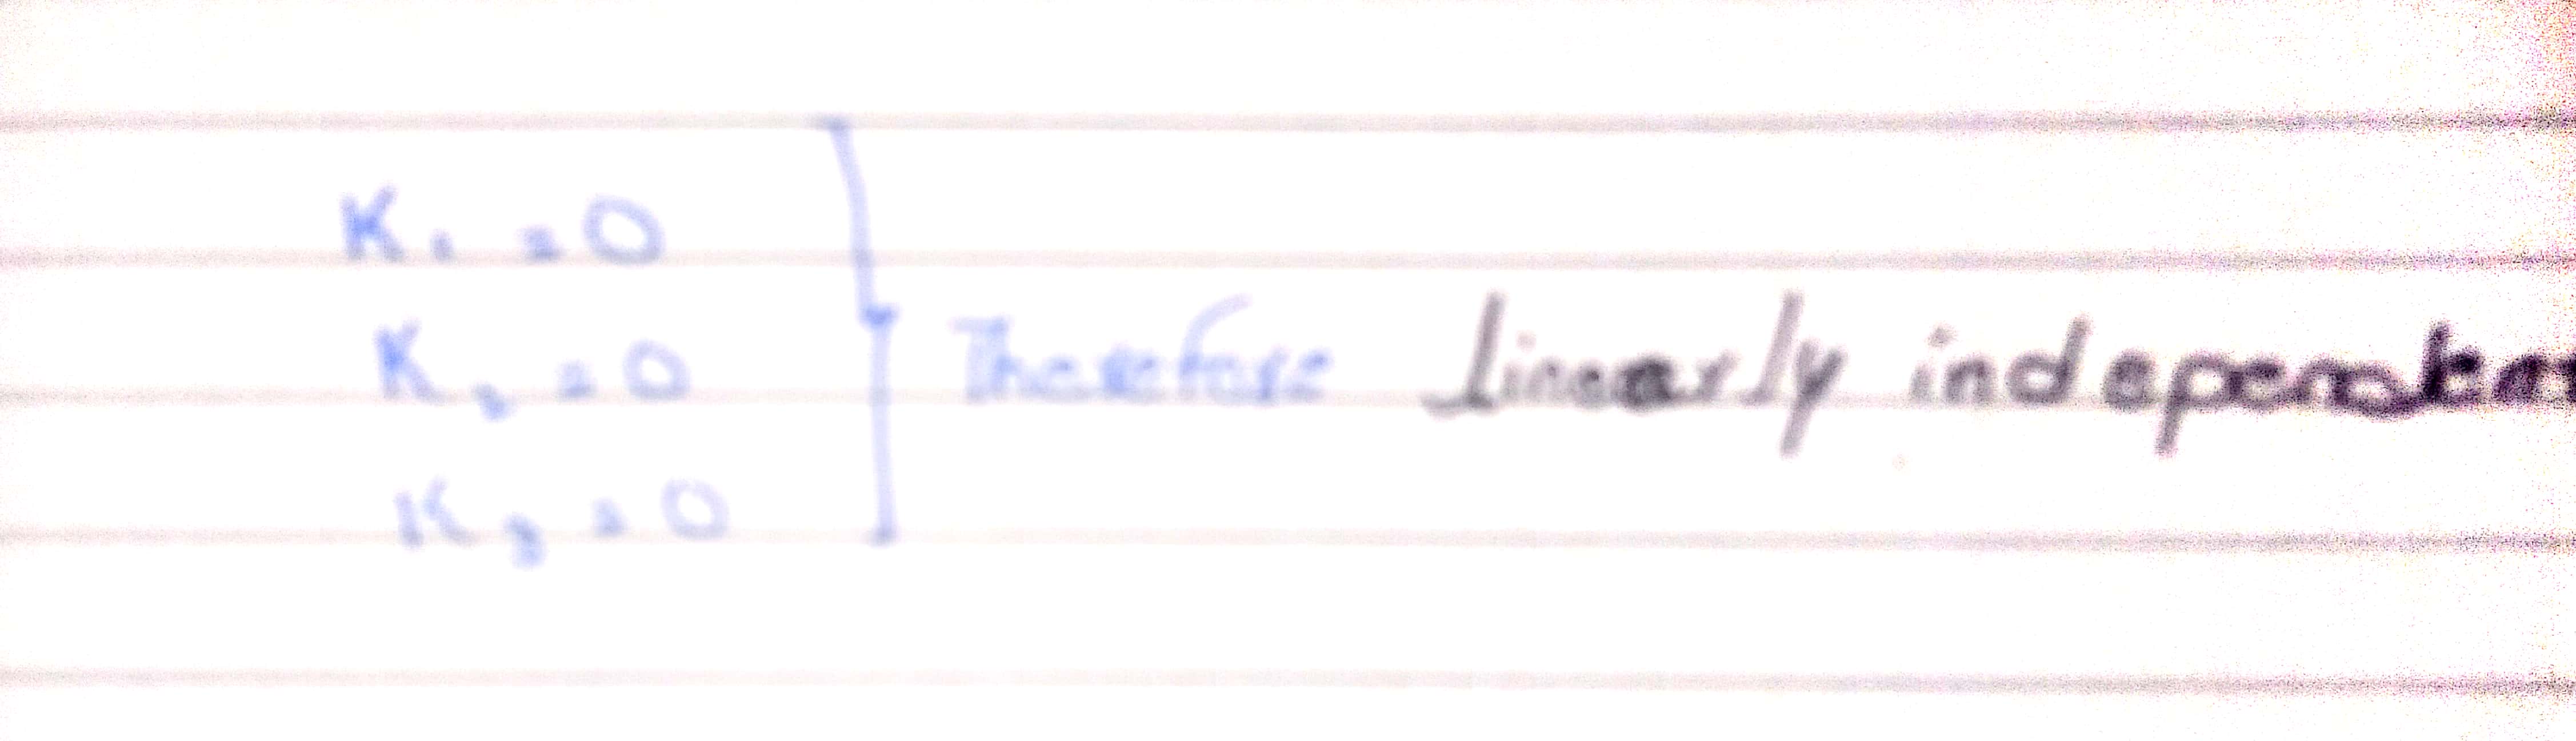 K₁ = 0
K₂ = 0 Therefore linearly independent
K₃ = 0